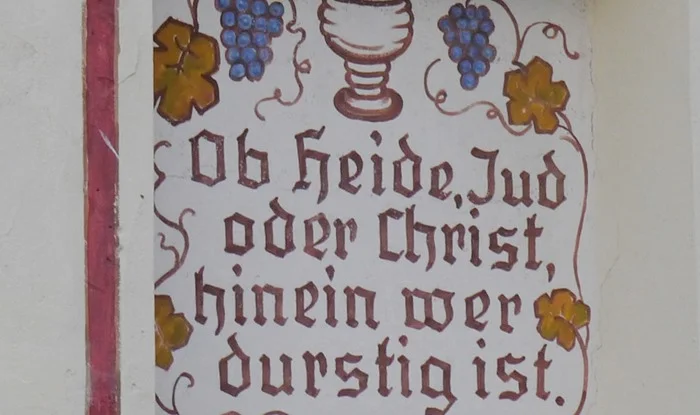 Ob Heide, Jud
oder Christ,
hinein wer
durstig ist.